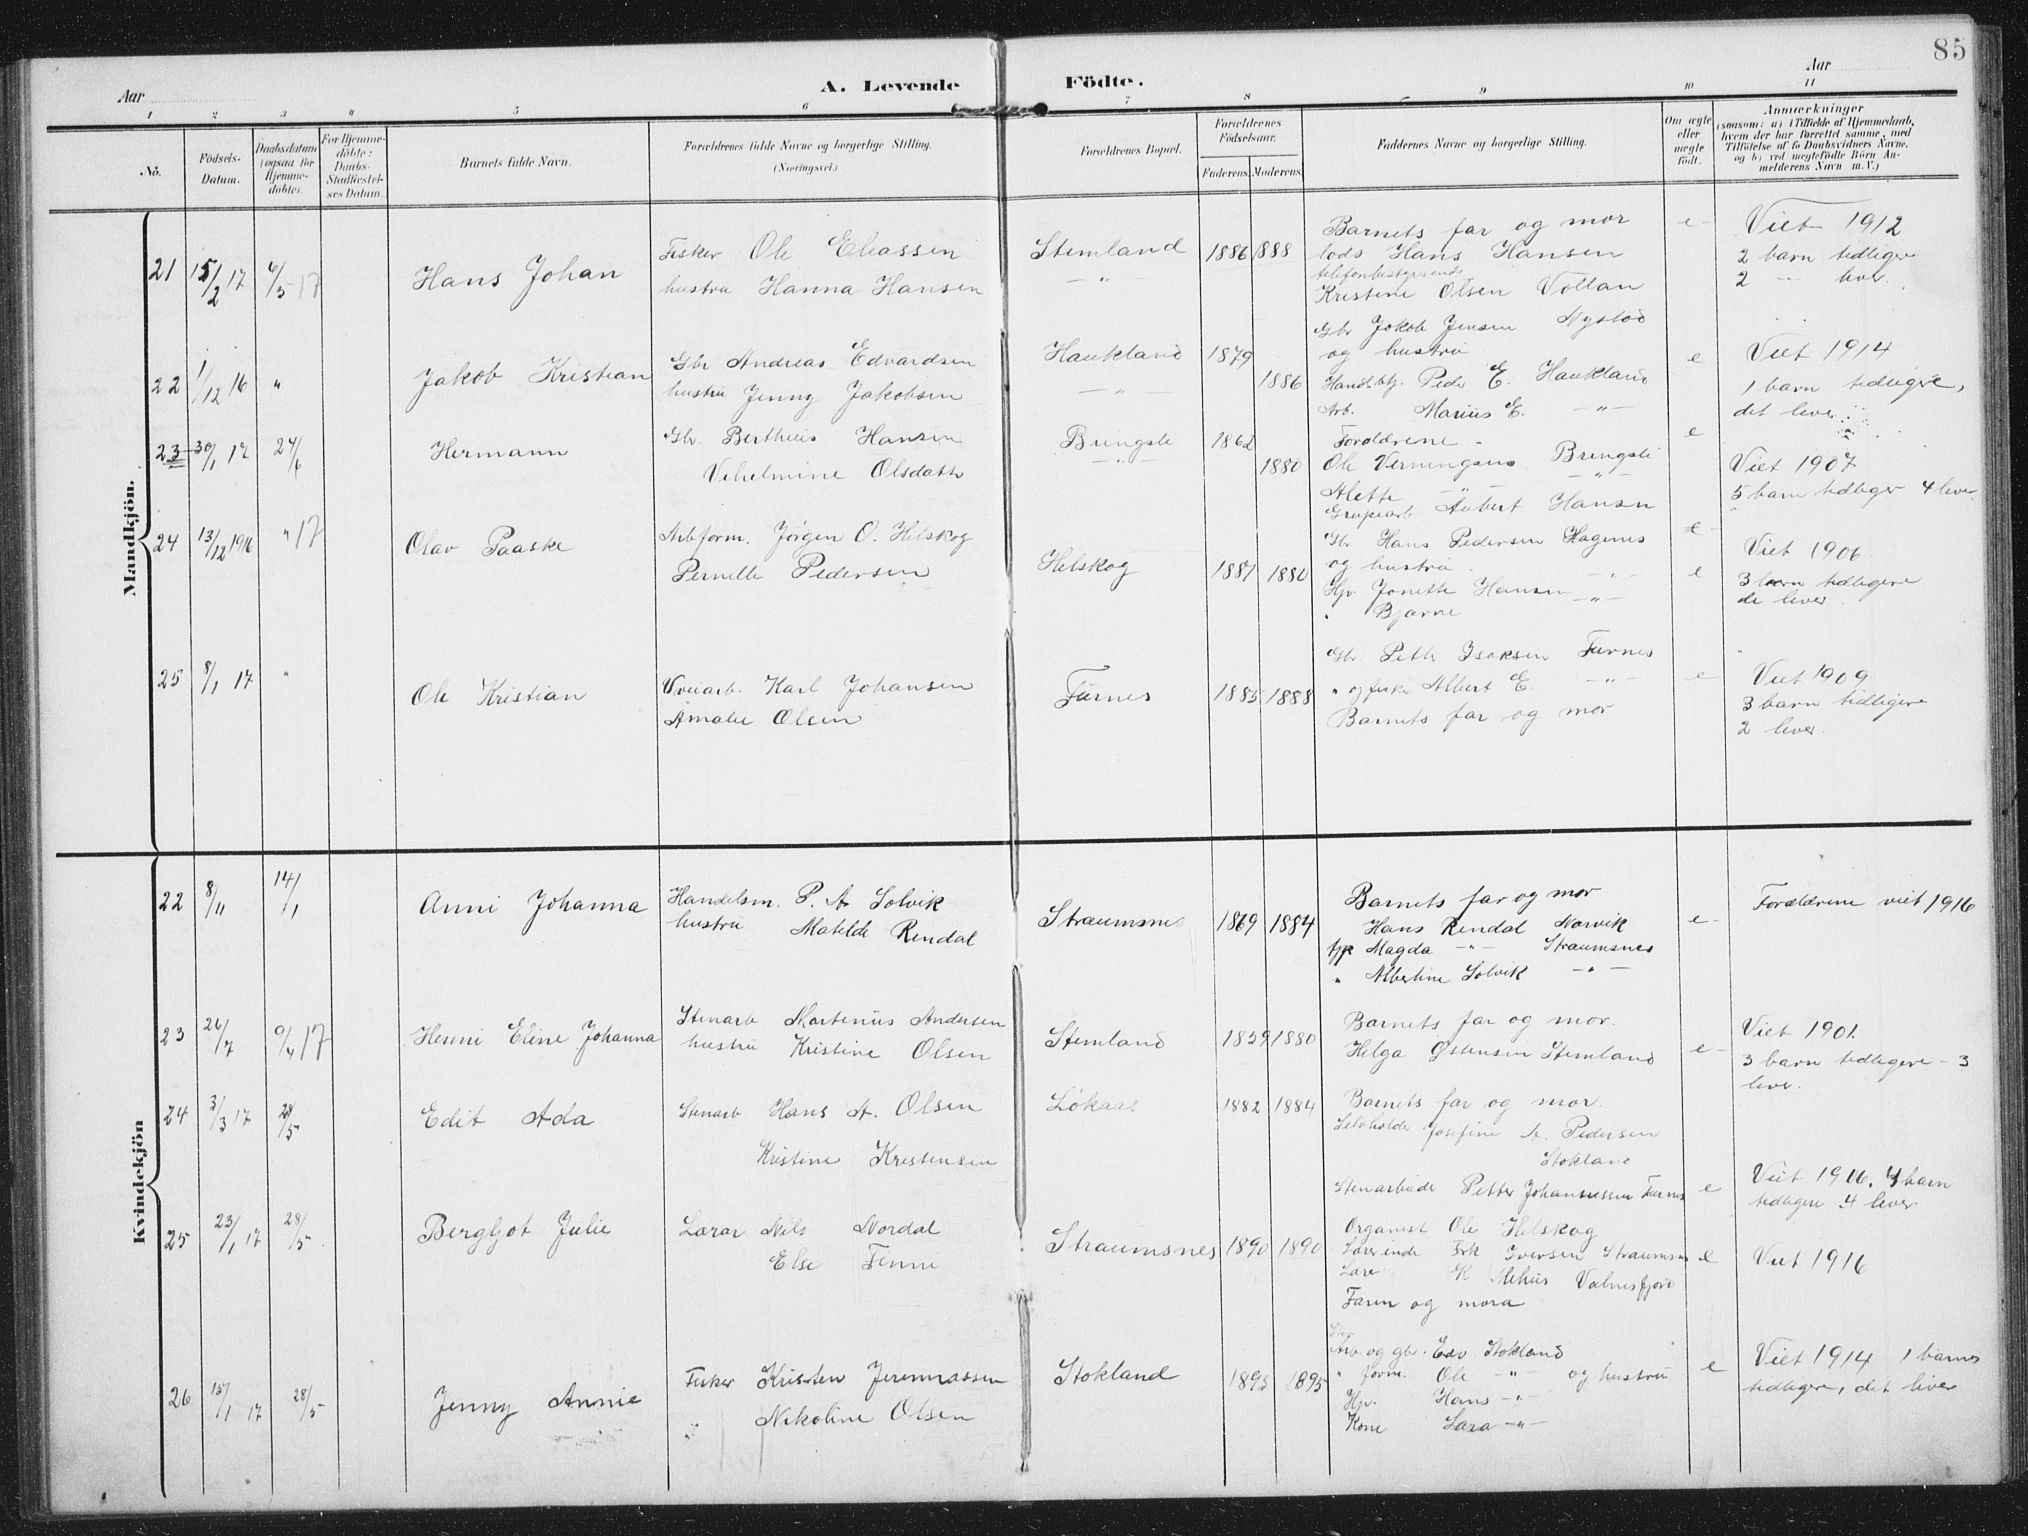 85
Aar
A. Levende
Födte.
Aar
1 2 3 4 5 6 7 8 9 10 11
No.
Födsels-
Datum.
Daabsdatum
(ogsaa for
Hjemme-
döbte).
For Hjemme-
döbte:
Daabs-
Stadfæstel-
ses Datum.
Barnets fulde Navn.
Forældrenes fulde Navne og borgerlige Stilling.
(Næringsvei.)
Forældrenes Bopæl.
Forældrenes
Födselsaar.
Faderens. Moderens.
Faddernes Navne og borgerlige Stilling.
Om ægte
eller
uægte
födt.
Anmærkninger
(saasom: a) i Tilfælde af Hjemmedaab,
hvem der har forrettet samme, med
Tilföielse af to Daabsvidners Navne,
og b) ved uægtefödte Börn An-
melderens Navn m. V.)
Mandkjön.
21 15/2 17 6/5 17 Hans Johan
Fisker Ole Eliassen
hustru Hanna Hansen
Stemland
— " —
1886 1888
Barnets far og mor
lods Hans Hansen
telefonbestyrerinde
Kristine Olsen Vollan
e
Viet 1912
2 barn tidligere
2 " lever.
22 1/12 16 " Jakob Kristian
Gbr Andreas Edvardsen
hustru Jenny Jakobsen
Haukland
— " —
1879 1886
Gbr Jakob Jensen Nystad
og hustru
Handlbtj. Peder E. Haukland
Arb. Marius E. — " —
e
Viet 1914
1 barn tidligere,
det lever
23 30/1 17 24/6 Hermann
Gbr. Berthius Hansen
Vilhelmine Olsdatter
Bringsli
— " —
1862 1880
Forældrene
Ole Verningsens Bringsli
Alette — " — "
Grubearb Aubert Hansen
e
Viet 1907
5 barn tidliger 4 lever
24 13/12 1916 " 17 Olav Paaske
Arbform. Jørgen O. Helskog
Pernelle Pedersen
Helskog
1881 1880
Gbr Hans Pedersen Hagenes
og hustru
Hjv. Jonette Hansen — " —
" Bjarne — " —
e
e
Viet 1906.
3 barn tidligere
de lever.
25 8/1 17 " Ole Kristian
Veiarb. Karl Johansen
Amalie Olsen
Furnes
1885 1888
Gbr Petter Isaksen Furnes
" og fisker Albert E. — " —
Barnets far og mor
e
Viet 1909
3 barn tidligere
2 lever.
Kvindekjön
22 8/11 14/1 Anni Johanna
Handelsm. P. A Solvik
hustru Matilde Rendal
Straumsnes
1869 1884
Barnets far og mor
Hans Rendal Narvik
tjp Magda — " — Straumsnes
" Albertine Solvik — " —
e
Forældrene viet 1916
23 26/7 9/4 17 Henni Eline Johanna
Stenarb Martenius Andersen
hustru Kristine Olsen
Stemland
1859 1880
Barnets far og mor.
Helga Østensen Stemland
e
Viet 1901.
3 barn tidligere – 3
lever.
24 3/3 17 28/5 Edit Ada
Stenarb Hans A. Olsen
Kristine Kristensen
Løkaas
1882 1884
Barnets far og mor.
Selvholde Josefine A. Pedersen
Stokland
Stenarbeide Petter Johannessen Furnes
e
Viet 1916. 4 barn
tidligere 4 lever
25 23/1 17 28/5 Bergljot Julie
Lærar Nils Nordal
Else Finne
Straumsnes
1890 1890
Organist Ole Helskog
Lærerinde Frk Iversen Straumsnes
Lære K Mehus Valnesfjord
Faren og mora
e
Viet 1916
26 15/1 17 28/5 Jenny Annie
Fisker Kristen Jeremiassen
" Nikoline Olsen
Stokland
1893 1895
Sten
Arb og gbr. Edv Stokland
" form. Ole — " — og hustru
Hjv. Hans — " —
Kone Sara — " —
e
Viet 1914 1 barn
tidligere, det lever